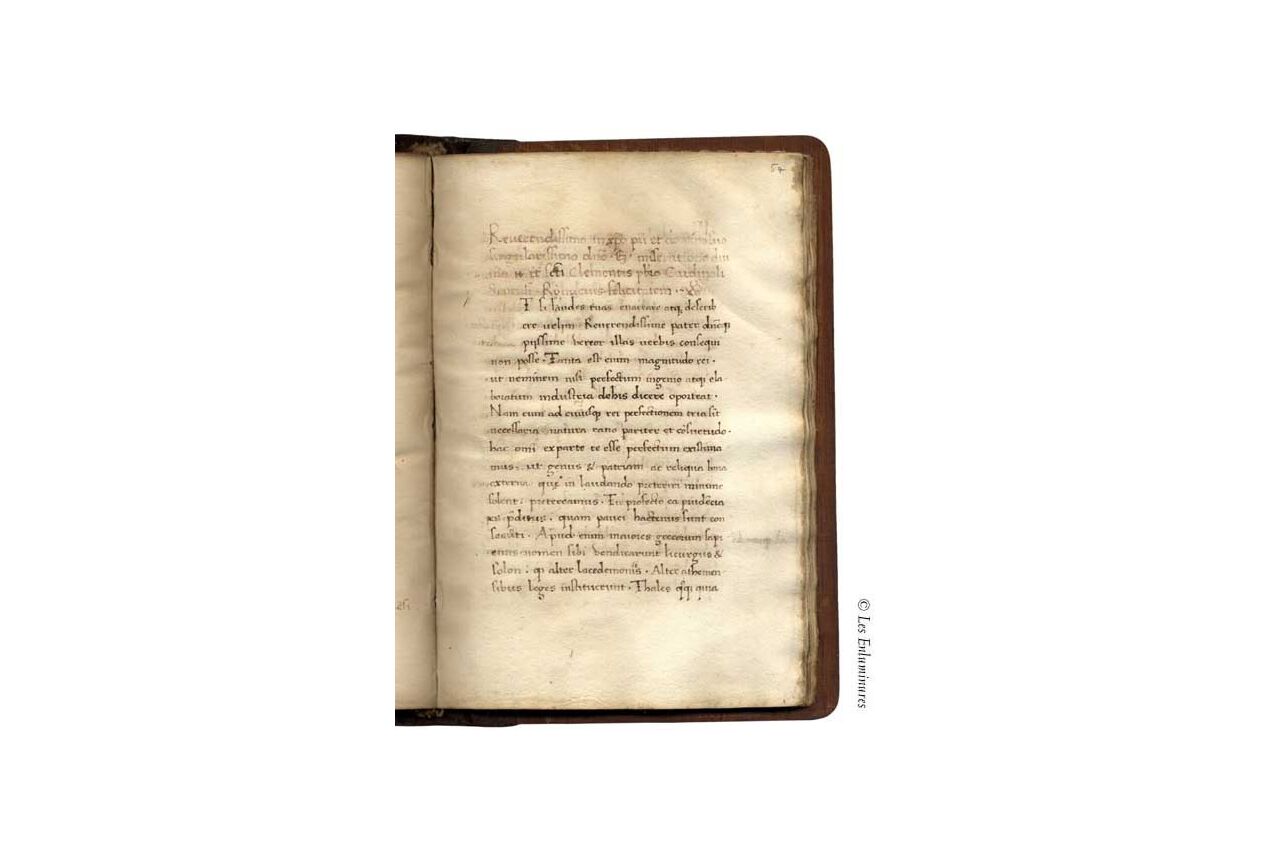 54
Reuerendissimo in xp̄o pr̄i et dn̄o suo
singularissimo dn̄o . G . miseratione diui
na tt̄ sc̄ti Clementis pb̄ro Cardinali
felicitatem .
T si laudes tuas enarrare atq; describ
ere uelim Reuerendissime pater dn̄eq;
piissime uereor illas uerbis consequi
non posse . Tanta est enim magnitudo rei .
ut neminem nisi perfectum ingenio atq; ela
boratum industria de his dicere oporteat .
Nam cum ad cuiusq; rei perfectionem tria sīt
necessaria natura ratio pariter et cōsuetudo .
hac om̄i ex parte te esse perfectum existima
mus . ut genus & patriam ac reliqua bona
externa que in laudando preteriri minime
solent : pretereamus . Tu profecto ea prudētia
p̄ditus . quam pauci hactenus sunt con
secuti . Apud enim maiores grecorum sapi
entis nomen sibi uendicarunt licurgus &
solon : qp alter lacedemoniis . Alter athenien
sibus leges instituerunt . Thales quia
© Les Enluminures